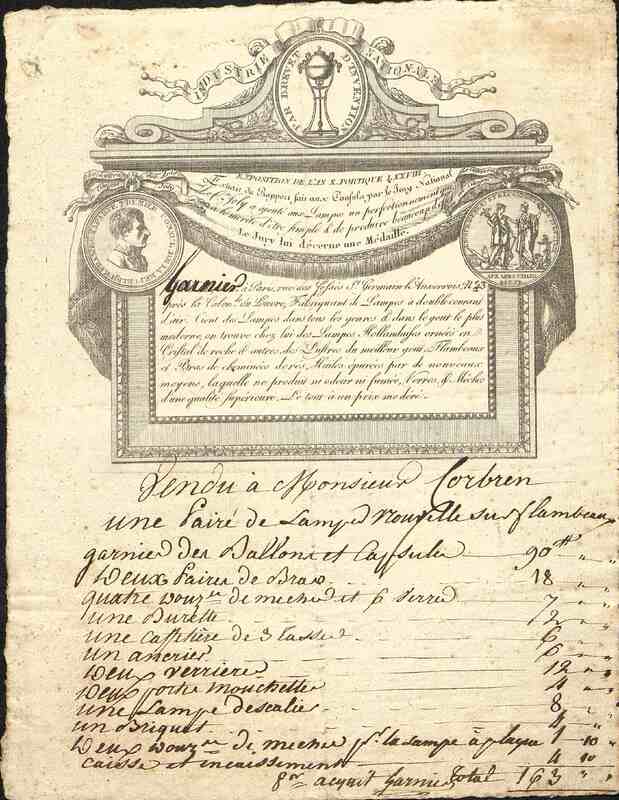 INDUSTRIE NATIONALE
PAR BREVET D'INVENTION
EXPOSITION DE L'AN X. PORTIQUE LXXVIII
Extrait du Rapport fait aux Consuls, par le Jury National
Mr. Joly a ajouté aux Lampes un perfectionnement
d'être simple & de produire beaucoup
Le Jury lui décerne une Médaille.
Garnier à Paris, rue des Fossés St. Germain l'Auxerrois, No. 43
près la Colon.de du Louvre, Fabriquant de Lampes à double courant
d'air. Tient des Lampes dans tous les genres & dans le gout le plus
moderne, on trouve chez lui des Lampes Hollandaises ornées en
Cristal de roche & autres, des Lustres du meilleur gout, Flambeaux
et Bras de cheminées dorés, Huiles épurées par de nouveaux
moyens, laquelle ne produit ni odeur ni fumée, Verres, & Mèches
d'une qualité supérieure. Le tout à un prix modéré.
Vendu à Monsieur Corbren
une Paire de Lampes Nouvelle sur flambeaux
garnies des Ballons et Capsules 90 " "
Deux Paires de Bras 18 " "
quatre Douz.ne de meches et 6 verres 7 " "
une Burette " "
une caffetière de 3 tasses 6 " "
un ancrier 6 " "
Deux verrieres 12 " "
Deux porte mouchettes 4 " "
une Lampe descalier 8 " "
un Briquet 4 " "
Deux Douz.ne de meches pr. la lampe à plaque 1 10 "
caisse et incaissement 4 10 "
pr acquit Garnier total 163 "